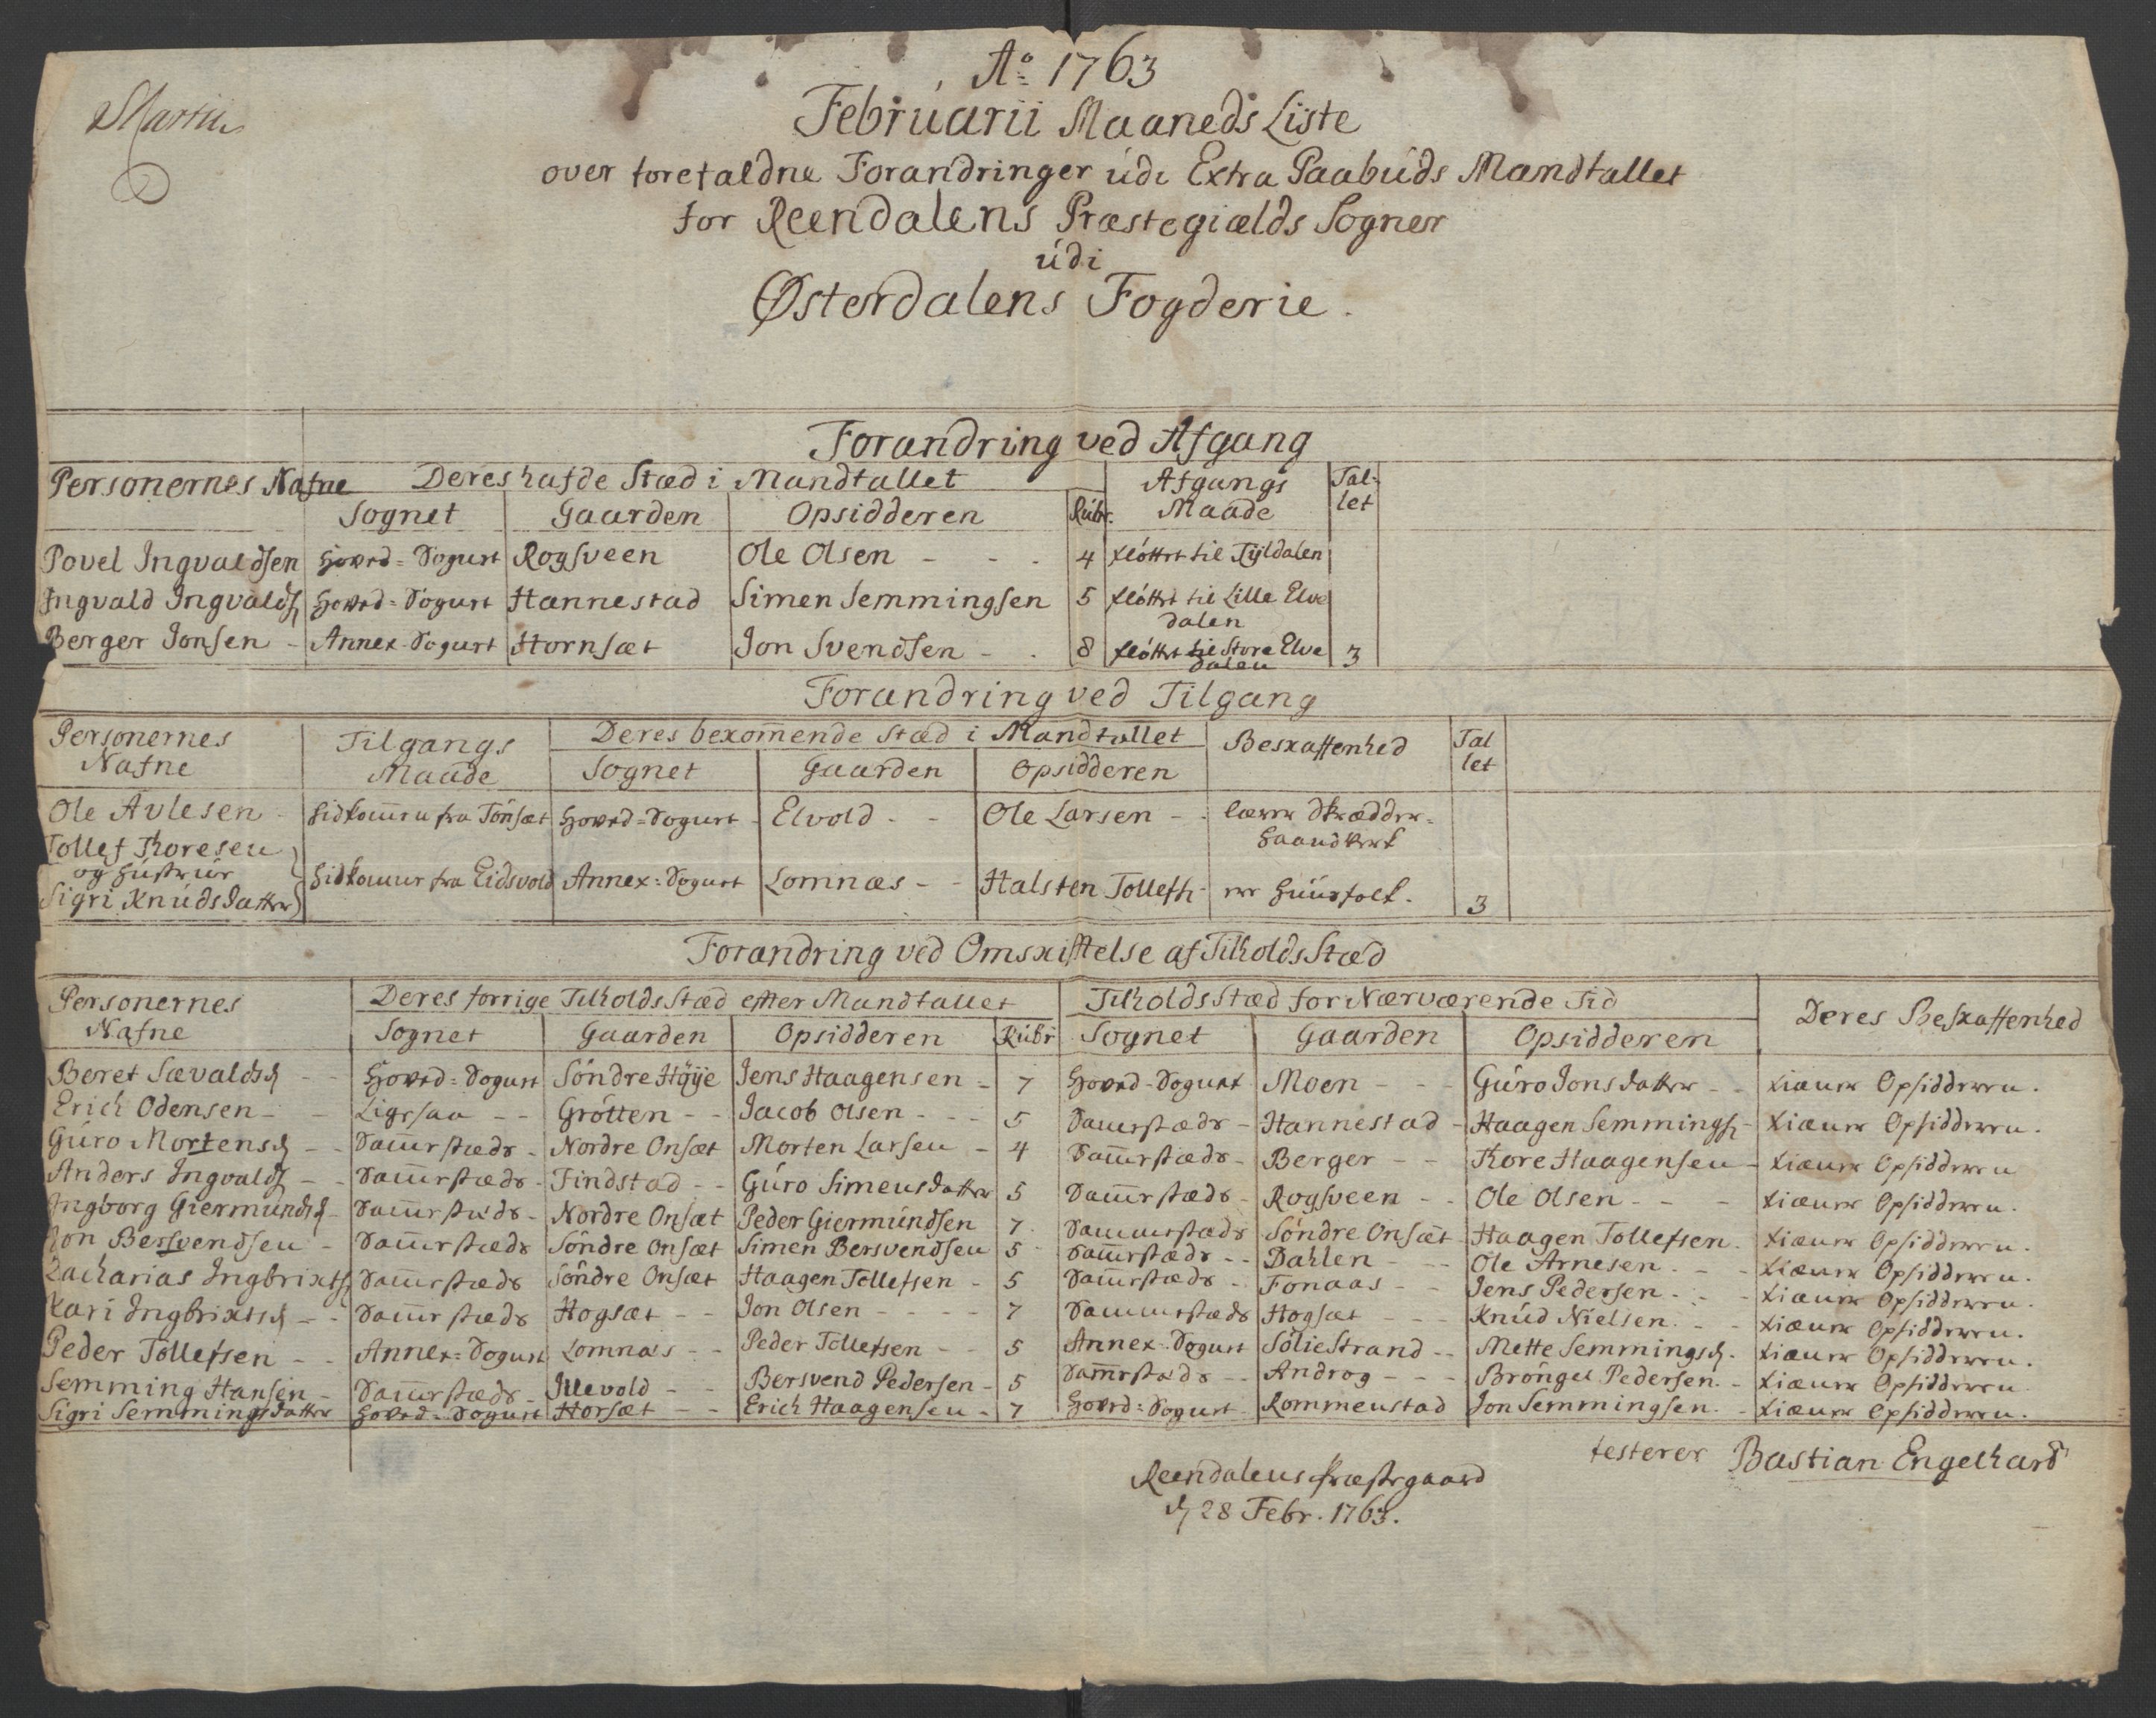 Martius
Aº 1763
Februarii Maaneds Liste
over forefaldne Forandringer udi Extra Paabuds Mandtallet
for Reendalens Præstegiælds Sogner
udi
Østerdalens Fogderie.
Forandring ved Afgang
Personernes Nafne Deres hafde Stæd i Mandtallet Afgangs Maade Tal-let
Sognet Gaarden Opsidderen Rubr.
Povel Ingvaldsen Hoved-Sognet Rogsveen Ole Olsen - - 4 fløttet til Tÿldalen
Ingvald Ingvalds. Hoved-Sognet Hannestad Simen Semmingsen 5 fløttet til Lille Elve
dalen
Berger Jonsen - Annex-Sognet Hornsæt Jon Svendsen - - 8 fløttet til Store Elve 3
dalen
Forandring ved Tilgang
Personernes Nafne Tilgangs Maade Deres bekom̄ende Stæd i Mandtallet Beskaffenhed Tal let
Sognet Gaarden Opsidderen
Ole Avlesen - hidkom̄en fra Tönsæt Hoved-Sognet - Elvold - - Ole Larsen - - lærer Skrædder-
Haandverk
Tollef Koresen
og Hustrue hidkommer fra Eidsvold Annex-Sognet Lomnæs - - Halsten Tollefs. - er Huusfolk. 3
Sigri Knudsdatter
Forandring ved Omskiftelse af Tilholds Stæd
Personernes Nafne Deres forrige Tilholds Stæd efter Mandtallet Tilholds Stæd for Nærværende Tid Deres Beskaffenhed
Sognet Gaarden Opsidderen Rubr Sognet Gaarden Opsidderen
Beret Sævaldsd. - - Hoved-Sognet Söndre Höÿe Jens Haagensen - 7 Hoved-Sognet Moen - - - Guro Jonsdatter - - tiæner Opsidderen.
Erich Odensen - - Ligesaa - - Grötten - - Jacob Olsen - - - 5 Sam̄esteds - Hannestad - Haagen Semmings. - tiæner Opsidderen.
Guro Mortensd. - - Sam̄esteds - Nordre Onsæt Morten Larsen - 4 Sam̄esteds - Berger - - Kore Haagensen - tiæner Opsidderen
Anders Ingvalds. - - Sam̄esteds - Findstad - - Guro Simensdatter 5 Sam̄esteds - Rogsveen - - Ole Olsen - - - tiæner Opsidderen.
Ingborg Giermundsd. - Sam̄esteds - Nordre Onsæt Peder Giermundsen 7. Sammesteds Söndre Onsæt - Haagen Tollefsen. tiæner Opsidderen.
Jon Bersvendsen - Sam̄esteds Söndre Onsæt Simen Bersvendsen 5 Sam̄esteds - - Dahlen - - - Ole Arnesen. - - tiæner Opsidderen.
Zacharias Ingbrixts. Sam̄esteds Söndre Onsæt Haagen Tollefsen - 5 Sam̄esteds - Fonaas - - Jens Pedersen - - - tiæner Opsidderen.
Kari Ingbrixtsd. - - Sam̄esteds Hogsæt - - Jon Olsen - - - - 7 Sammesteds Hogsæt - - - Knud Nielsen. - - tiæner Opsidderen.
Peder Tollefsen - - Annex-Sognet Lomnæs - - Peder Tollefsen - - 5 Annex-Sognet Sölie Strand - - Mette Semmingsd. - tiæner Opsidderen.
Semming Hansen - Sam̄esteds - Illevold - - Bersvend Pedersen - 5 Sam̄esteds - - Androg - - - Bröngel Pedersen. - tiæner Opsidderen
Sigri Semmingsdatter Hoved-Sognet Horsæt - - Erich Haagensen - 7 Hoved-Sognet - Rommenstad Jon Semmingsen. - tiæner Opsidderen.
testerer Bastian Engelhard
Reendalens Præstegaard
d. 28 Febr. 1763.